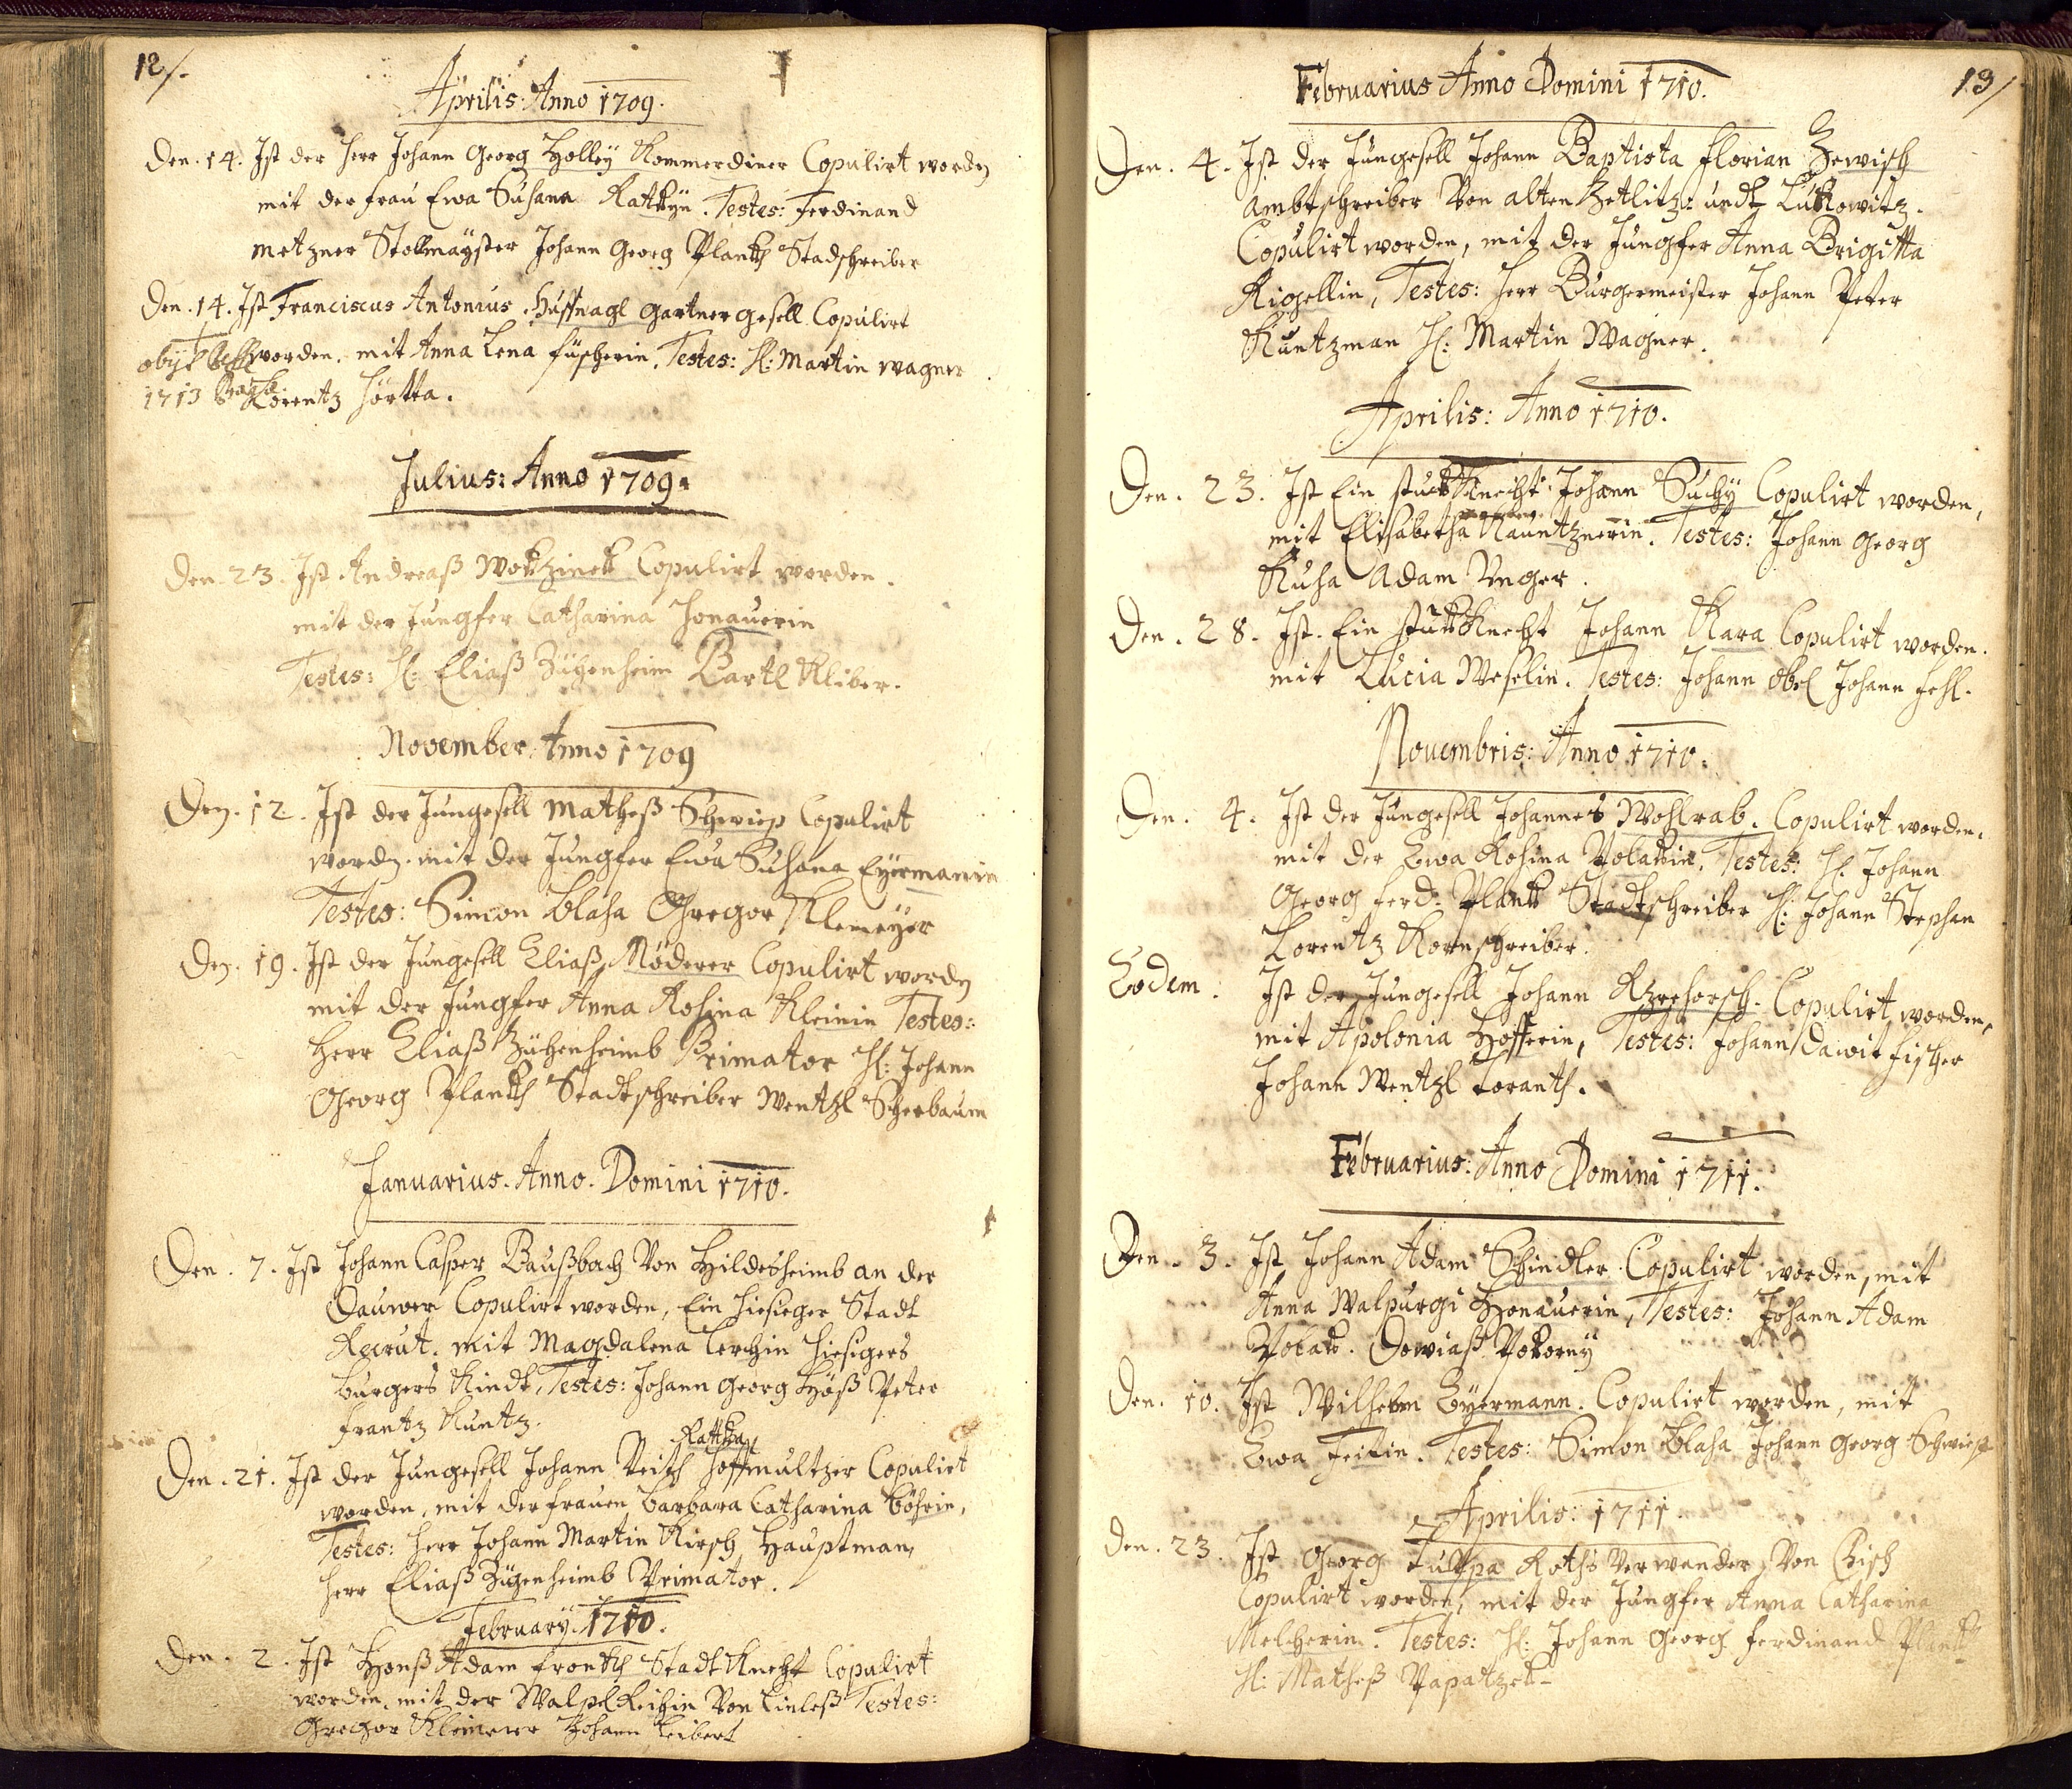 12/.
Aprilis: Anno 1709.
Den. 14. Ist der Herr Johann Georg Holleÿ Kommerdiner Copulirt wordn
mit der frau Ewa Susana Rattkÿn. Testes: Ferdinand
Metzner Stollmaÿster Johann Georg Plankh Stadschreiber
Den. 14. Ist Franciscus Antonius Huffnagl gartner gesell Copulirt
worden. mit Anna Lena füscherin. Testes: H: Martin wagner
1713 Lorentz Hörtta.
Julius: Anno 1709.
Den. 23. Ist Andreaß Wokzinek Copulirt worden.
mit der Jungfer Catharina Honauerin
Testes: H: Eliaß Zühenheim Bartl Kliber.
November. Anno 1709
Den. 12. Ist der Jungesell Matheß Schwiep Copulirt
wordn. mit der Jungfer Ewa Susana Eÿermanin
Testes: Simon Blaha Gregor Klemeÿer
Den. 19. Ist der Jungesell Eliaß Möderer Copulirt wordn
mit der Jungfer Anna Rosina Kleinin Testes:
Herr Eliaß Zühenheimb Primator H: Johann
Georg Plankh Stadtschreiber Wentzl Scherbaum
Januarius. Anno. Domini 1710.
Den. 7. Ist Johann Casper Baußbach Von Hildesheimb an der
Dauwer Copulirt worden, Ein hiesieger Stadt
Recrut. mit Magdalena Lerchin hiesigers
burgers Kindt, Testes: Johann Georg Höß Peter
frantz Kuntz.
Rattka
Den. 21. Ist der Jungesell Johann Veith Hoffmultzer Copulirt
worden, mit der frauen barbara Catharina böhrin,
Testes: Herr Johann Martin Kirsch Hauptman,
Herr Eliaß Zühenheimb Primator.
February. 1710.
Den. 2. Ist Hanß Adam Frankh Stadt Knecht Copulirt
worden, mit der Walpl Reichin Von Linleß Testes:
Gregor Kleimeier Johann Leibert
13/
Februarius Anno Domini 1710.
Den. 4. Ist der Jungesell Johann Baptista Florian Zewisch
Ambtschreiber Von alten Zetlitz: undt Lukowitz.
Copulirt worden, mit der Jungfer Anna Brigitta
Rigellin, Testes: Herr Burgermeister Johann Peter
Kuntzman H: Martin Wagner.
Aprilis: Anno 1710.
Den. 23. Ist Ein stuckKnecht Johann Suchÿ Copulirt worden,
mit Elisabetha Kauntznerin. Testes: Johann Georg
Kuha Adam Unger.
Den. 28. Ist. Ein stuckKnecht Johann Kara Copulirt worden.
mit Lucia Weselin. Testes: Johann Obel Johann Fehl.
Nouembris: Anno 1710.
Den. 4. Ist der Jungesell Johannes Wohlrab. Copulirt worden.
mit der Ewa Rosina Polakin. Testes: H. Johann
Georg Ferd: Plank Stadtschreiber H: Johann Stephan
Lorentz Kornschreiber.
Eodem. Ist der Jungesell Johann Rzrehorsch. Copulirt worden,
mit Apolonia Hofferin, Testes: Johann Dawit Fischer
Johann Wentzl Toranth.
Februarius: Anno Domini 1711.
Den. 3. Ist Johann Adam Schindler Copulirt worden, mit
Anna Walpurgi Honauerin, Testes: Johann Adam
Polak. Dowiaß Pokorny
Den. 10. Ist Wilhelm Eÿermann. Copulirt worden, mit
Ewa Feitin. Testes: Simon Blaha Johann Georg Schwiep
Aprilis: 1711.
Den. 23. Ist Georg Tuppa Raths Verwander Von Chisch
Copulirt worden, mit der Jungfer Anna Catharina
Melcherin. Testes: H: Johann Georg Ferdinand Plankh
H: Matheß Papatzek